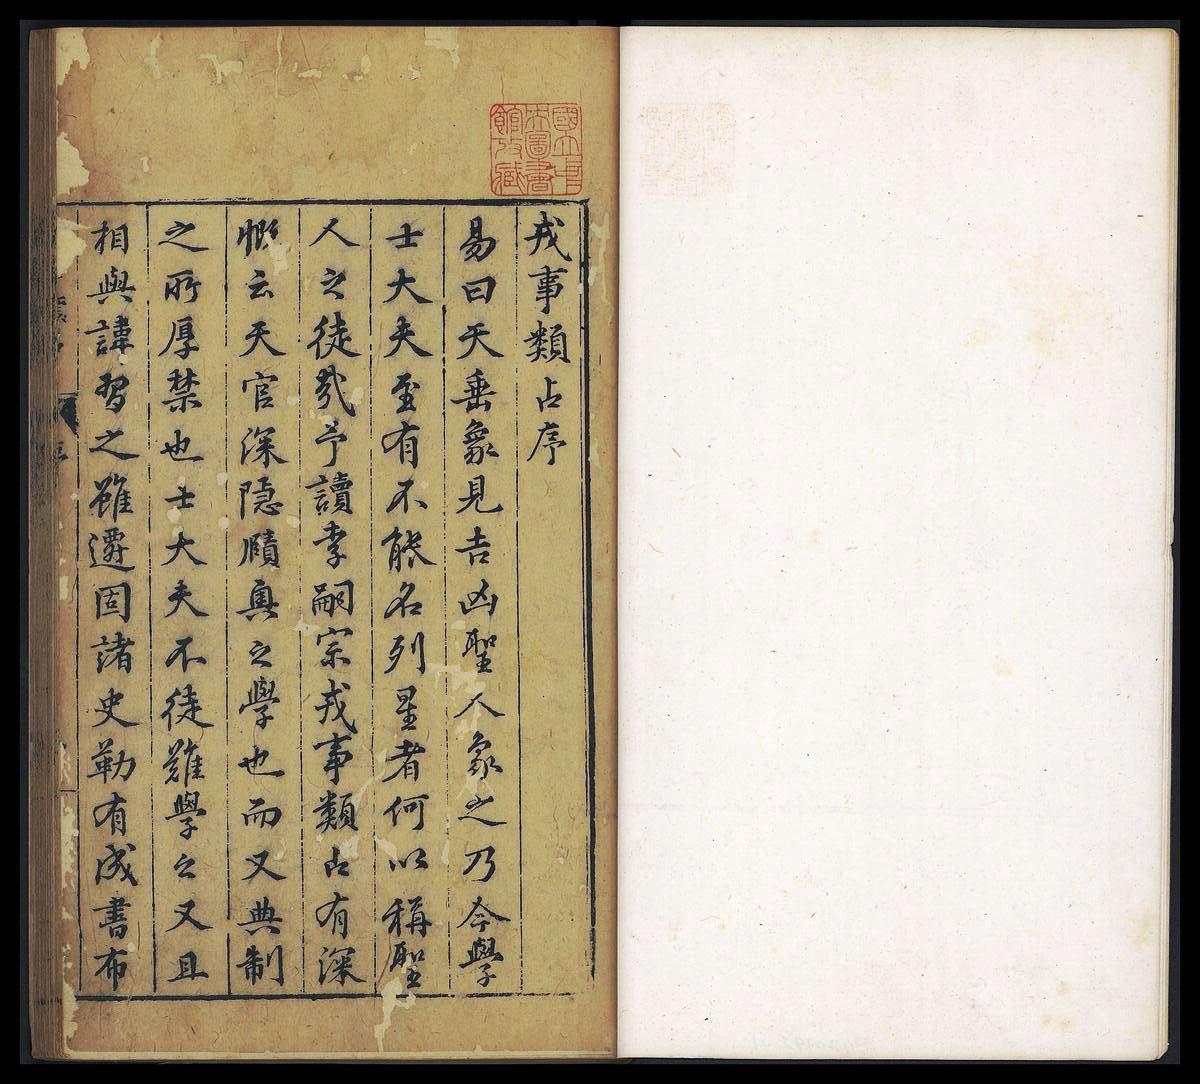 戎事類占序
易曰天垂象見吉凶聖人象之乃今學
士大夫至有不能名列星者何以稱聖
人之徒哉予讀李嗣宗戎事類占有深
慨云天官深隱賾奧之學也而又典制
之所厚禁也士大夫不徒難學之又且
相與諱習之雖遷固諸史勒有成書布
國立中央圖書館收藏